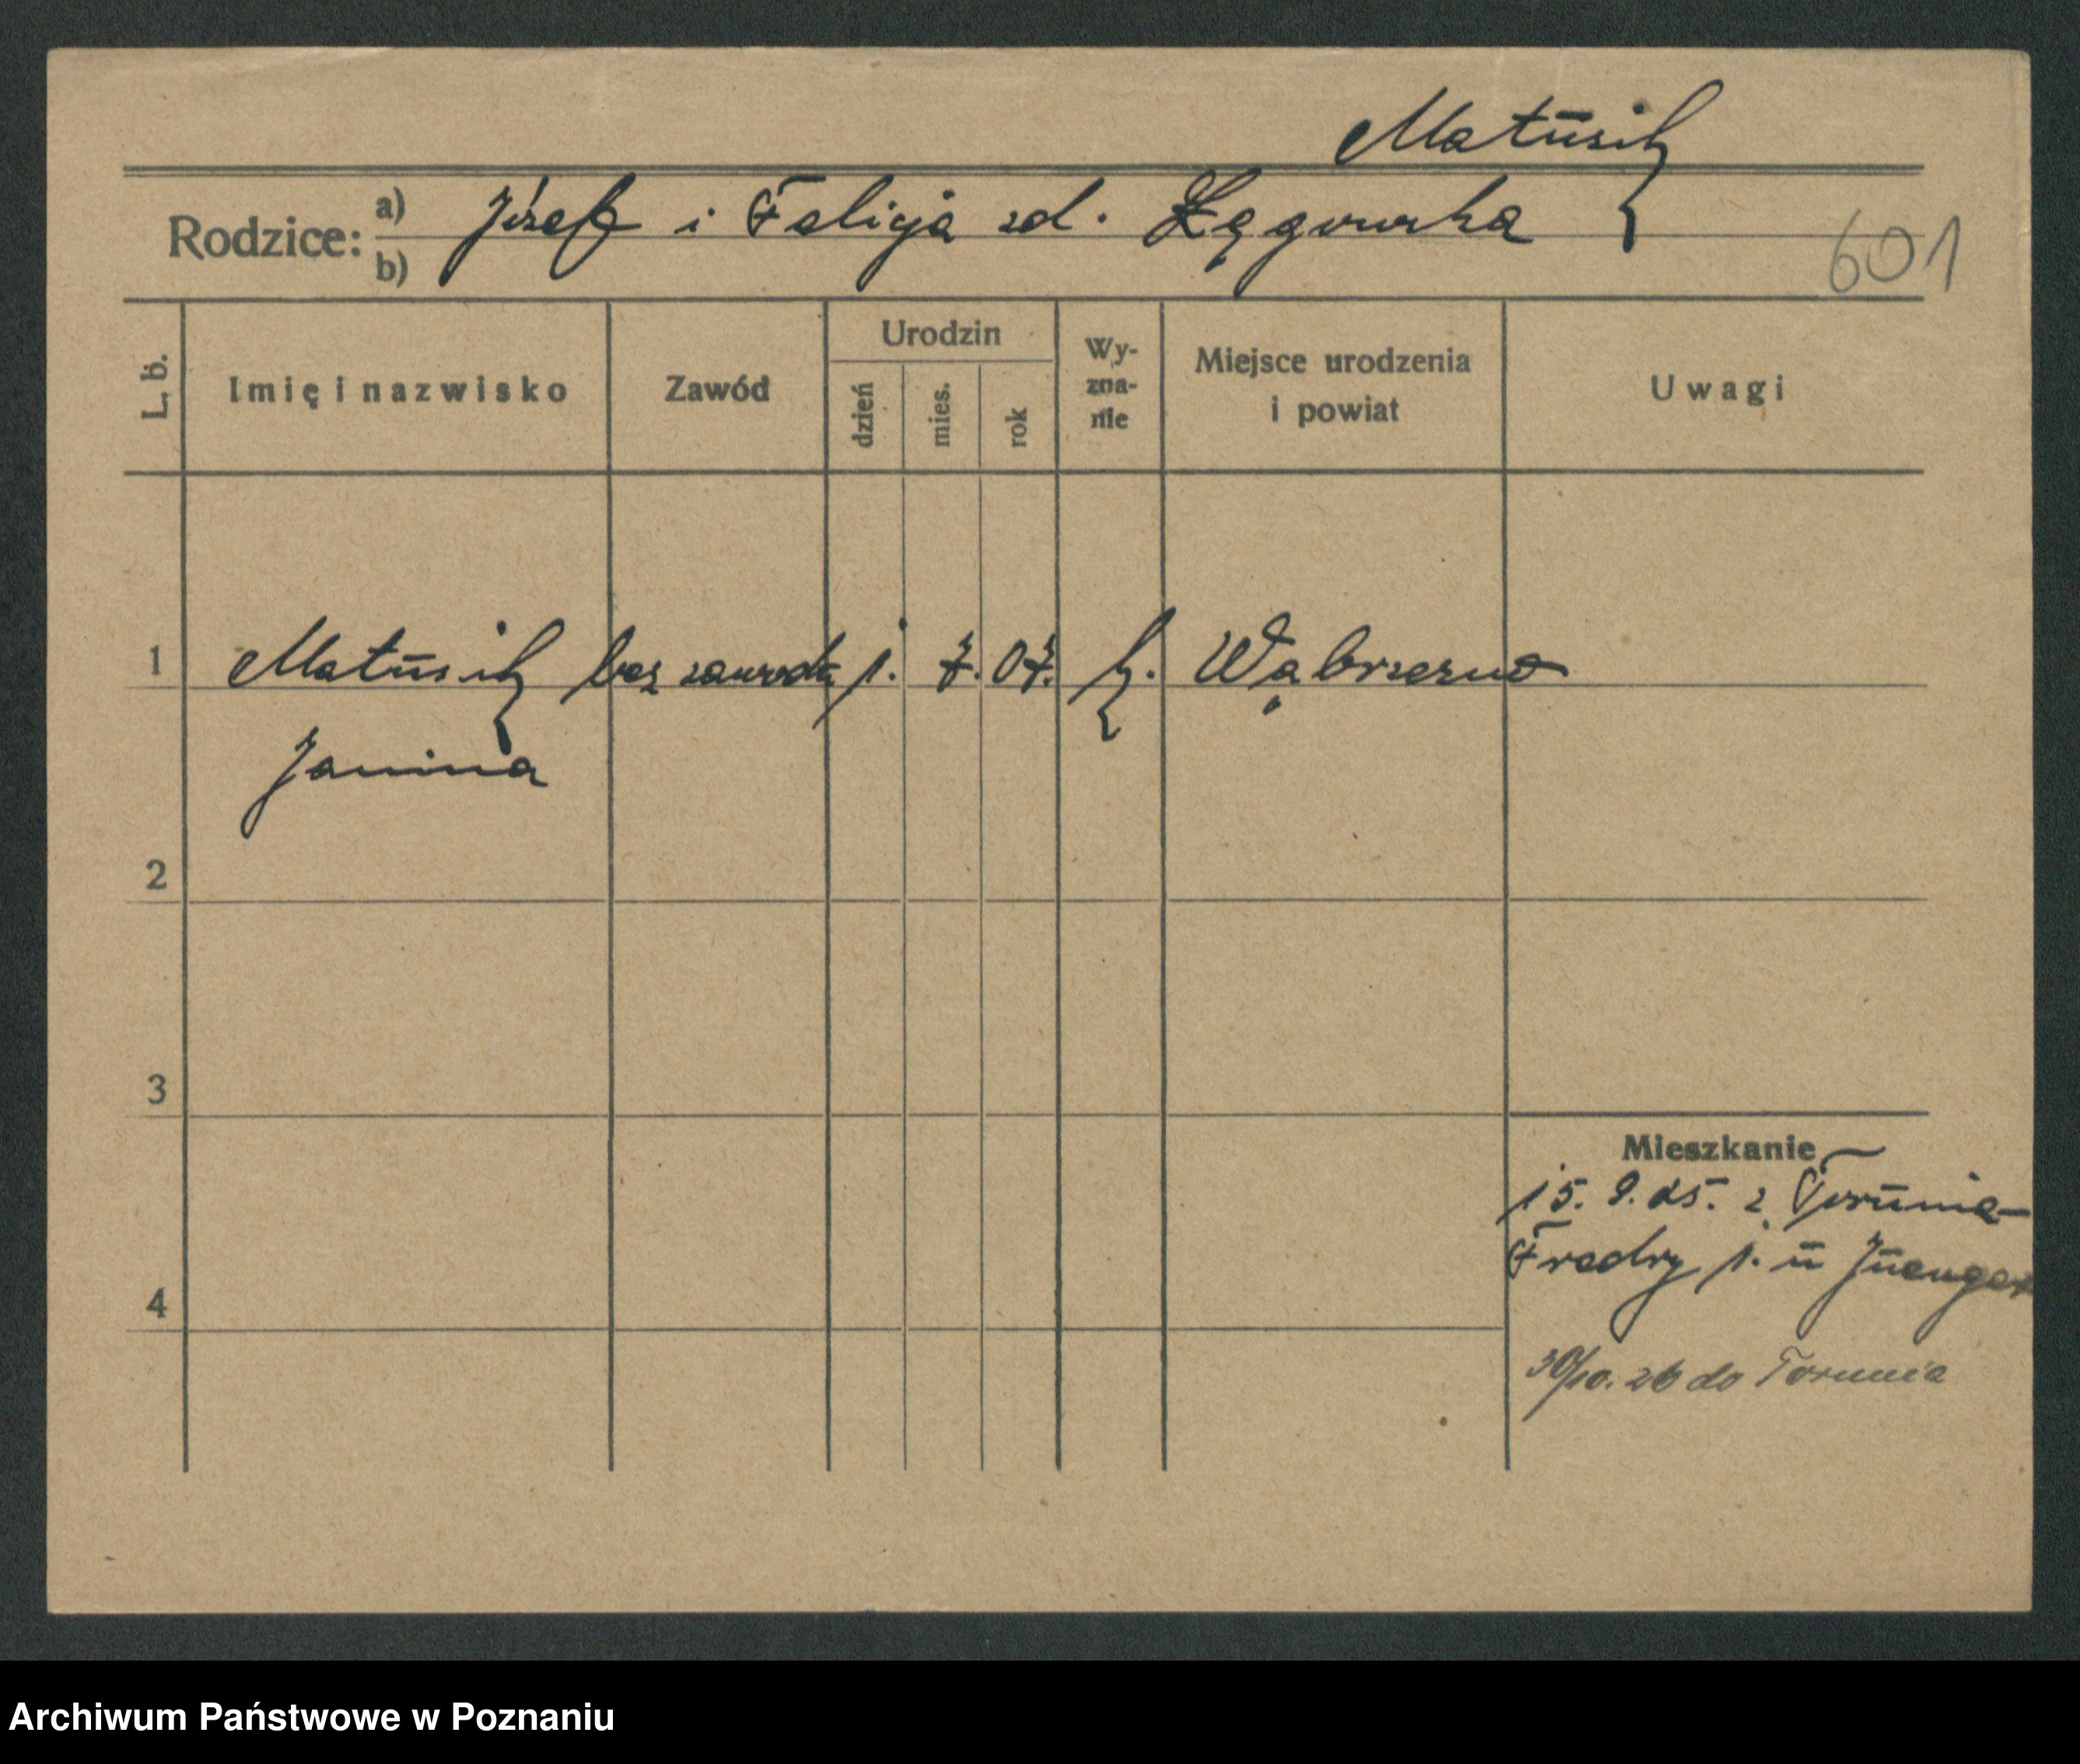 Matusik
Rodzice: a) b) Józef i Felicja zd. Łęgowska
601
L. b.
Imię i nazwisko
Zawód
Urodzin
dzień
mies.
rok
Wy-
zna-
nie
Miejsce urodzenia
i powiat
Uwagi
1 Matusik bez zawodu 1. 7. 07. k. Wąbrzezno
Janina
2
3
4
Mieszkanie
15. 9. 25. z Torunia
Fredry 1. u
30/10. 26 do Torunia
Archiwum Państwowe w Poznaniu